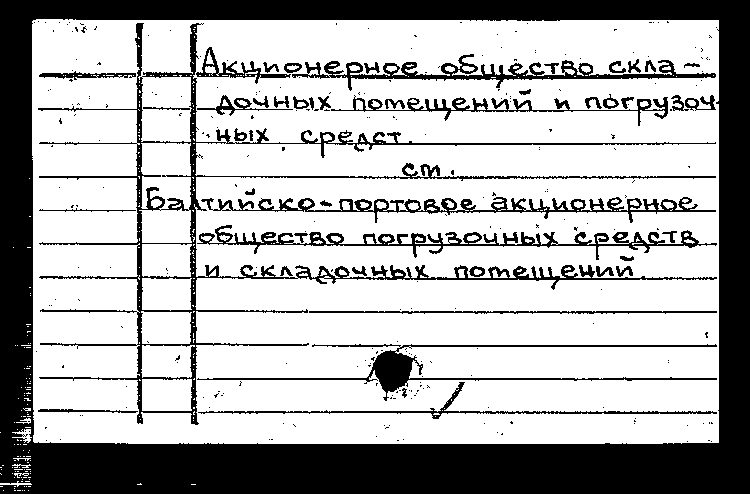 Акционерное общество скла-
дочных помещений и погрузоч-
ных средст.
см.
Балтийско-портовое акционерное
общество погрузочных средств
и складочных помещений.